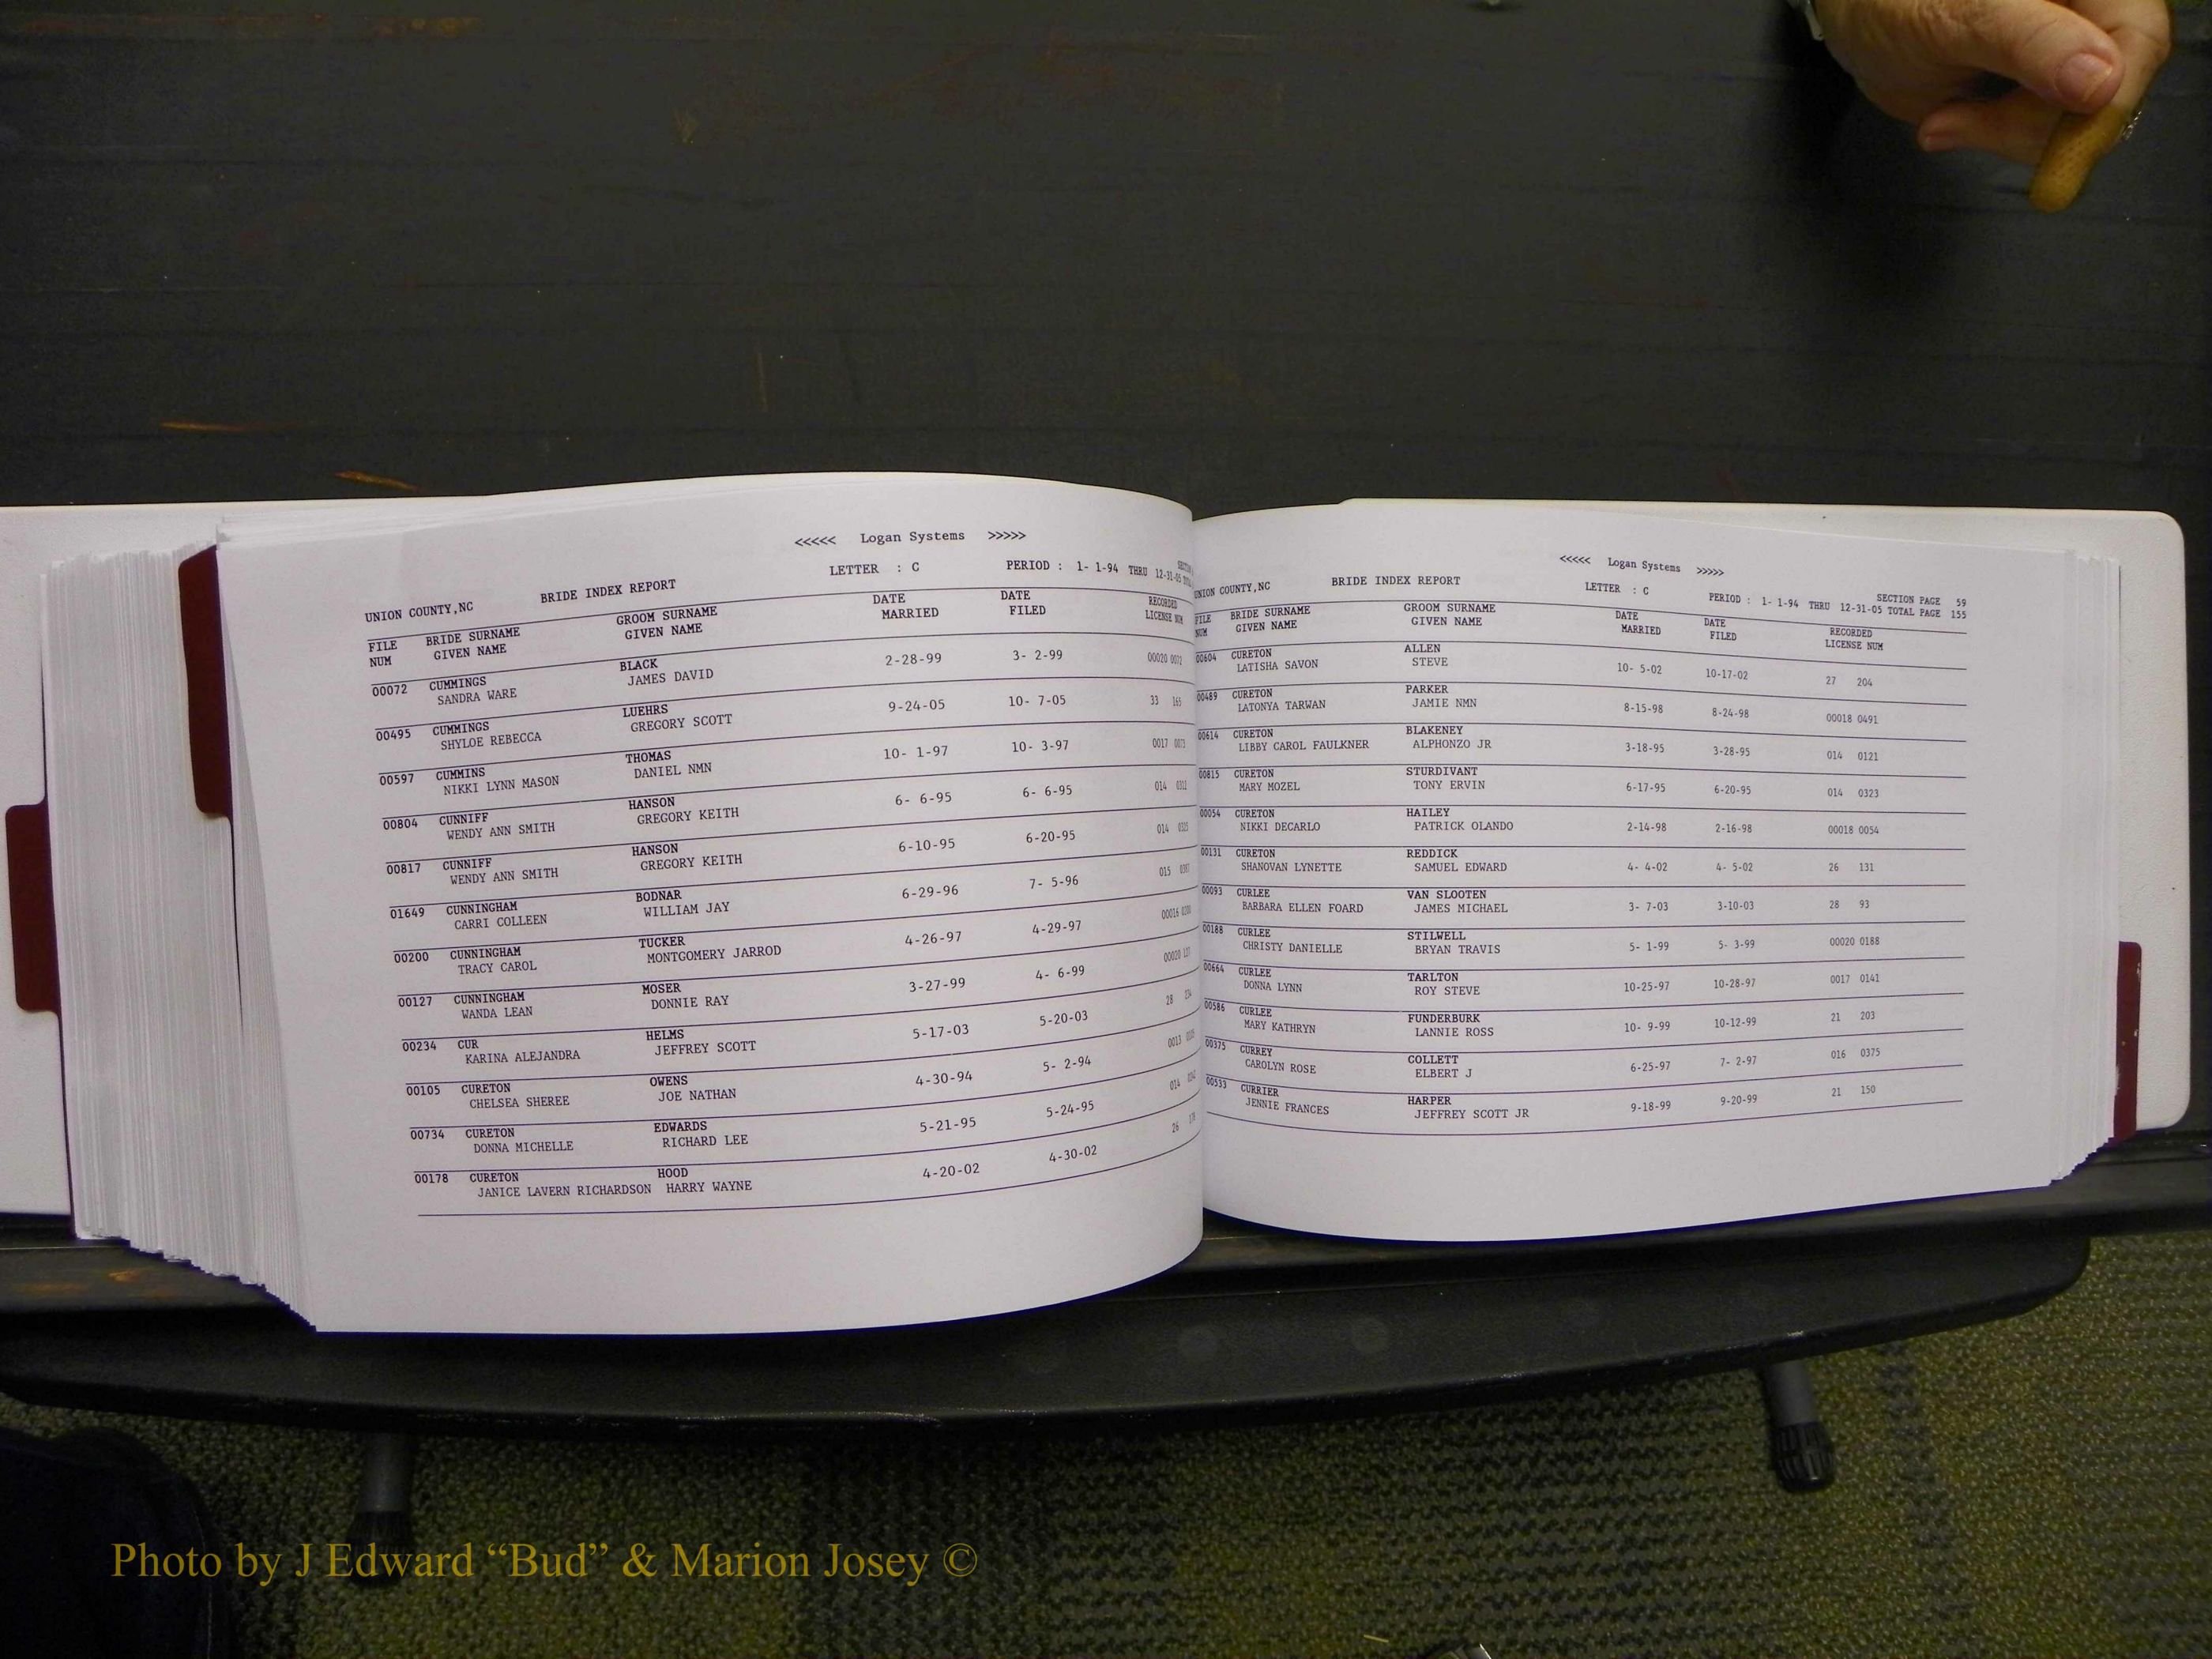 <<<<< Logan Systems >>>>>
LETTER : C PERIOD : 1- 1-94 THRU 12-31-05
UNION COUNTY,NC BRIDE INDEX REPORT
FILE BRIDE SURNAME GROOM SURNAME DATE DATE RECORDED
NUM GIVEN NAME GIVEN NAME MARRIED FILED LICENSE NUM
00072 CUMMINGS BLACK 2-28-99 3- 2-99 00020 0072
SANDRA WARE JAMES DAVID
00495 CUMMINGS LUEHRS 9-24-05 10- 7-05 33 165
SHYLOE REBECCA GREGORY SCOTT
00597 CUMMINS THOMAS 10- 1-97 10- 3-97 0017
NIKKI LYNN MASON DANIEL NMN
00804 CUNNIFF HANSON 6- 6-95 6- 6-95 014
WENDY ANN SMITH GREGORY KEITH
00817 CUNNIFF HANSON 6-10-95 6-20-95 014
WENDY ANN SMITH GREGORY KEITH
01649 CUNNINGHAM BODNAR 6-29-96 7- 5-96 015
CARRI COLLEEN WILLIAM JAY
00200 CUNNINGHAM TUCKER 4-26-97 4-29-97 00016
TRACY CAROL MONTGOMERY JARROD
00127 CUNNINGHAM MOSER 3-27-99 4- 6-99 00020
WANDA LEAN DONNIE RAY
00234 CUR HELMS 5-17-03 5-20-03 28
KARINA ALEJANDRA JEFFREY SCOTT
00105 CURETON OWENS 4-30-94 5- 2-94 0013
CHELSEA SHEREE JOE NATHAN
00734 CURETON EDWARDS 5-21-95 5-24-95 014
DONNA MICHELLE RICHARD LEE
00178 CURETON HOOD 4-20-02 4-30-02 26
JANICE LAVERN RICHARDSON HARRY WAYNE
<<<<< Logan Systems >>>>>
UNION COUNTY,NC BRIDE INDEX REPORT LETTER : C SECTION PAGE 59
PERIOD : 1- 1-94 THRU 12-31-05 TOTAL PAGE 155
FILE BRIDE SURNAME GROOM SURNAME DATE DATE RECORDED
NUM GIVEN NAME GIVEN NAME MARRIED FILED LICENSE NUM
00604 CURETON ALLEN 10- 5-02 10-17-02 27 204
LATISHA SAVON STEVE
00489 CURETON PARKER 8-15-98 8-24-98 00018 0491
LATONYA TARWAN JAMIE NMN
00614 CURETON BLAKENEY 3-18-95 3-28-95 014 0121
LIBBY CAROL FAULKNER ALPHONZO JR
00815 CURETON STURDIVANT 6-17-95 6-20-95 014 0323
MARY MOZEL TONY ERVIN
00054 CURETON HAILEY 2-14-98 2-16-98 00018 0054
NIKKI DECARLO PATRICK OLANDO
00131 CURETON REDDICK 4- 4-02 4- 5-02 26 131
SHANOVAN LYNETTE SAMUEL EDWARD
00093 CURLEE VAN SLOOTEN 3- 7-03 3-10-03 28 93
BARBARA ELLEN FOARD JAMES MICHAEL
00188 CURLEE STILWELL 5- 1-99 5- 3-99 00020 0188
CHRISTY DANIELLE BRYAN TRAVIS
00664 CURLEE TARLTON 10-25-97 10-28-97 0017 0141
DONNA LYNN ROY STEVE
00586 CURLEE FUNDERBURK 10- 9-99 10-12-99 21 203
MARY KATHRYN LANNIE ROSS
00375 CURREY COLLETT 6-25-97 7- 2-97 016 0375
CAROLYN ROSE ELBERT J
00533 CURRIER HARPER 9-18-99 9-20-99 21 150
JENNIE FRANCES JEFFREY SCOTT JR
Photo by J Edward “Bud” & Marion Josey ©